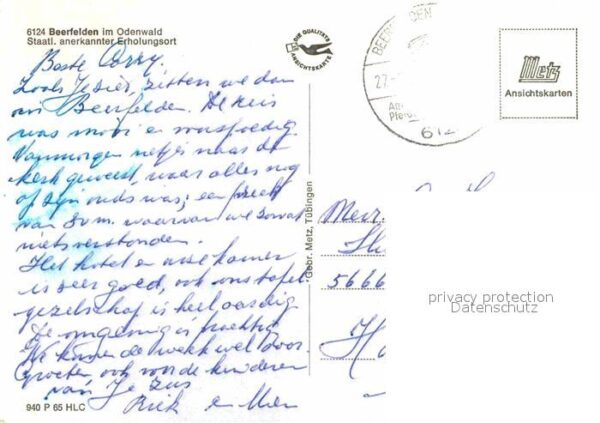 6124 Beerfelden im Odenwald
Staatl. anerkannter Erholungsort
Beste Corry.
Zoals Je ziet, zitten we dan
in Beerfelden. De reis
was mooi en voorspoedig.
Vanmorgen netjes naar de
kerk geweest, waar alles nog
of zijn ouds was; een preek
van 30 m. waarvan we zowat
niets verstonden.
Het hotel en onze kamer
is zeer goed, ook ons tafel-
gezelschap is heel aardig
De omgeving is prachtig
We komen de week wel door.
groeten ook voor de kinderen
van Je zus
Riek en
940 P 65 HLC
DIE QUALITÄTS
ANSICHTSKARTE
Gebr. Metz, Tübingen
BEERFELDEN
27.
612
Metz
Ansichtskarten
Mevr.
5666
privacy protection
Datenschutz